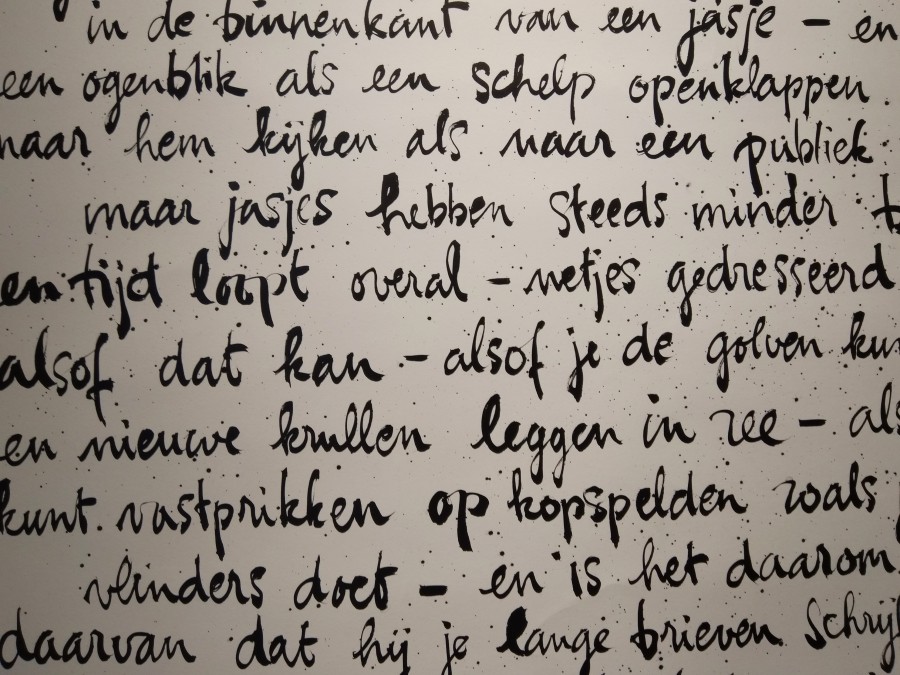 in de binnenkant van een jasje – en
een ogenblik als een schelp openklappen.
naar hem kijken als naar een publiek
maar jasjes hebben steeds minder
en tijd loopt overal – netjes gedresseerd
alsof dat kan – alsof je de golven
en nieuwe krullen leggen in zee – als
kunt vastprikken op kopspelden zoals
vlinders doet – en is het daarom
daarvan dat hij je lange brieven